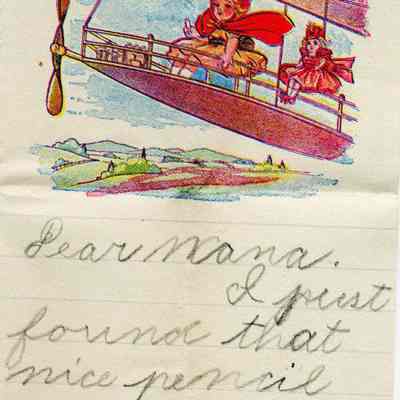 Dear Nana.
I just
found that
nice pencil